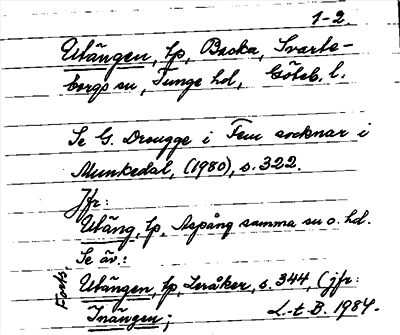 1-2.
Utängen, lp, Backa, Svarte-
borgs sn, Tunge hd, Göteb. l.
Se G. Drougge i Fem socknar i
Munkedal, (1980), s. 322.
Jfr:
Utäng, lp, Aspång samma sn o. hd.
Se äv.:
Utängen, lp, Leråker, s. 344, (jfr:
Inängen;
L.-t B. 1984.
Forts.